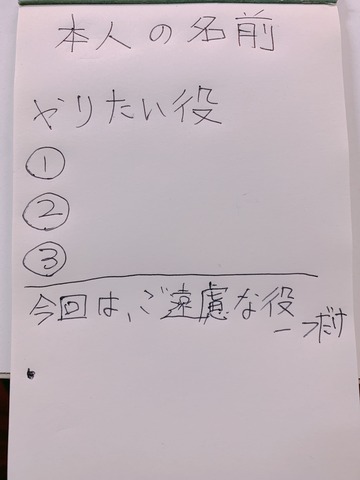 本人の名前
やりたい役
①
②
③
今回は、ご遠慮な役
一つだけ